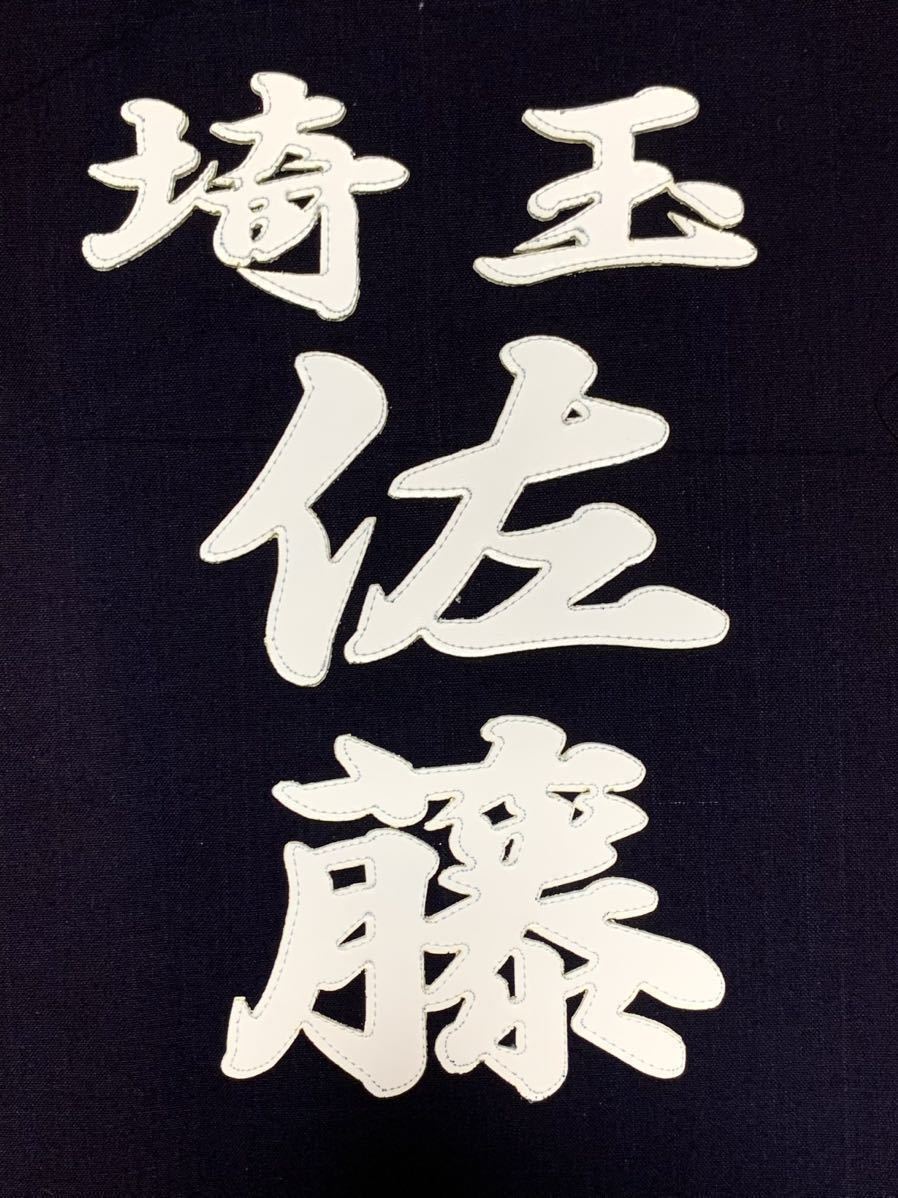 埼玉
佐
藤